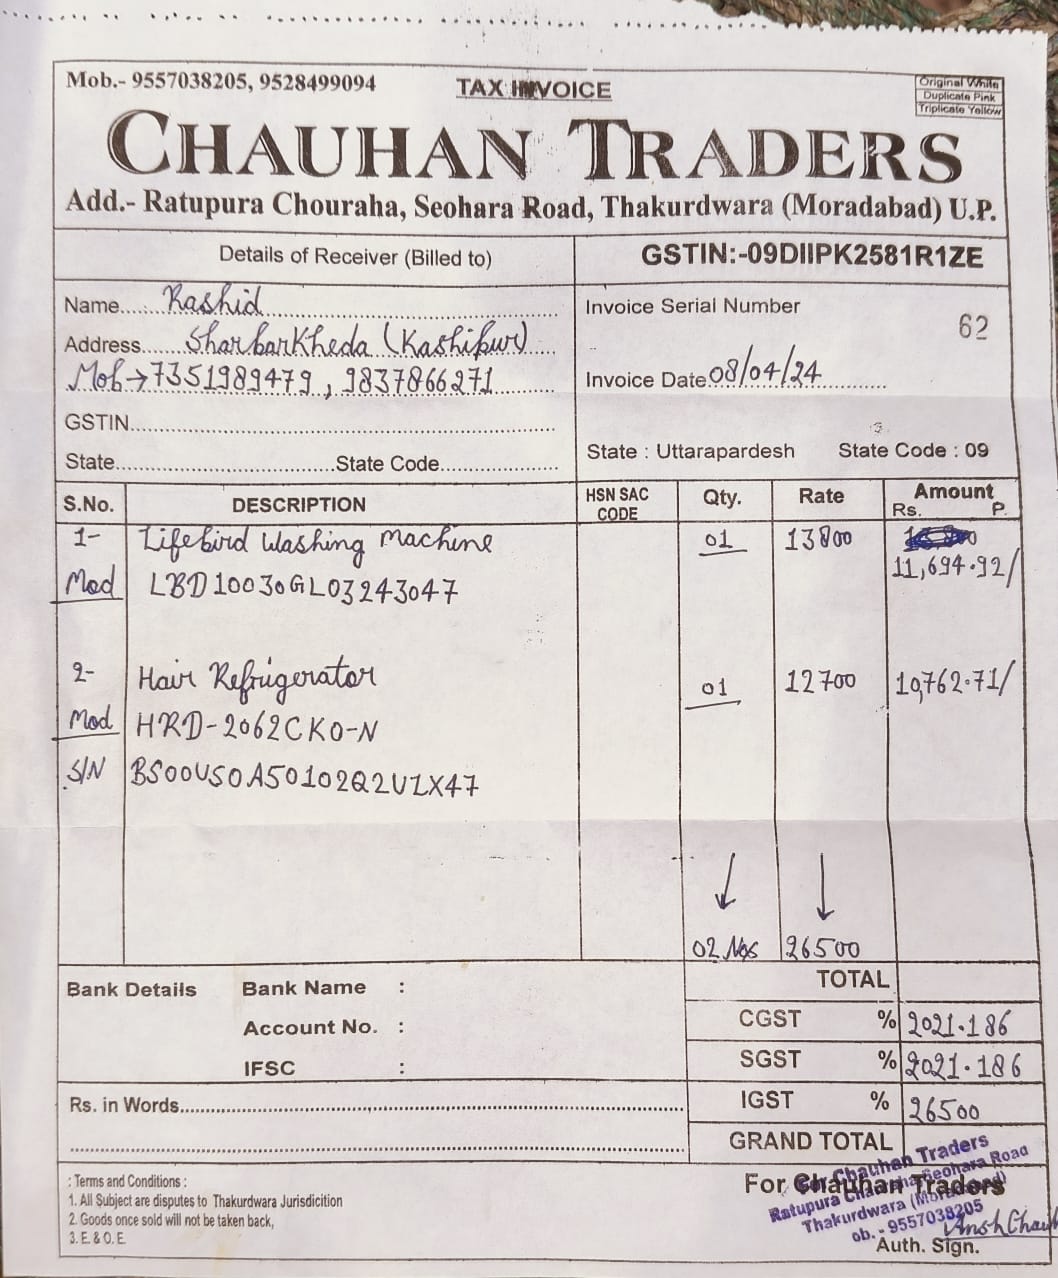 Mob.- 9557038205, 9528499094
TAX INVOICE
Original White
Duplicate Pink
Triplicate Yellow
CHAUHAN TRADERS
Add.- Ratupura Chouraha, Seohara Road, Thakurdwara (Moradabad) U.P.
Details of Receiver (Billed to)
GSTIN:-09DIIPK2581R1ZE
Name...... Rashid
Address...... Sharbarkheda (Kashipur)
Mob→7351989479, 9837866271
GSTIN......
State...... State Code......
Invoice Serial Number
62
Invoice Date 08/04/24
State : Uttarapardesh State Code : 09
S.No. DESCRIPTION HSN SAC CODE Qty. Rate Amount Rs. P.
1- Lifebird Washing Machine 01 13800
11,694.92/
Mod LBD10030GL03243047
2- Hair Refrigerator 01 12700 10,762.71/
Mod HRD-2062CKO-N
S/N BS00US0A50102Q2UZX47
02 Nos 26500
Bank Details Bank Name :
Account No. :
IFSC :
TOTAL
CGST % 2021.186
SGST % 2021.186
IGST % 26500
GRAND TOTAL
Rs. in Words......
: Terms and Conditions :
1. All Subject are disputes to Thakurdwara Jurisdicition
2. Goods once sold will not be taken back,
3. E. & O. E.
For Chauhan Traders
For Chauhan Traders
Ratupura Seohara Road
Thakurdwara
ob. - 9557038205
Ansh Chauh
Auth. Sign.